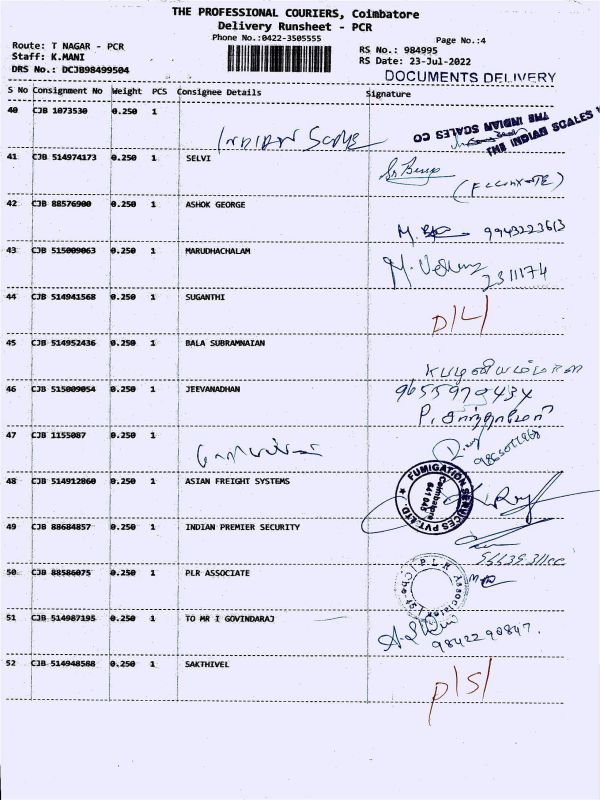 THE PROFESSIONAL COURIERS, Coimbatore
Delivery Runsheet - PCR
Phone No.:0422-3505555
Page No.:4
Route: T NAGAR - PCR
RS No.: 984995
Staff: K.MANI
RS Date: 23-Jul-2022
DRS No.: DCJB98499504
DOCUMENTS DELIVERY
S No Consignment No Weight PCS Consignee Details Signature
40 CJB 1073530 0.250 1
INDIAN SCALE
THE INDIAN SCALES CO
THE INDIAN SCALES
41 CJB 514974173 0.250 1 SELVI
42 CJB 88576900 0.250 1 ASHOK GEORGE
M. 9943223613
43 CJB 515009063 0.250 1 MARUDHACHALAM
2311174
44 CJB 514941568 0.250 1 SUGANTHI
D/L/
45 CJB 514952436 0.250 1 BALA SUBRAMNAIAN
46 CJB 515009054 0.250 1 JEEVANADHAN
9655979434
47 CJB 1155087 0.250 1
48 CJB 514912860 0.250 1 ASIAN FREIGHT SYSTEMS
FUMIGATION SERVICES PVT. LTD.
Coimbatore
49 CJB 88684857 0.250 1 INDIAN PREMIER SECURITY
50 CJB 88586075 0.250 1 PLR ASSOCIATE
P.L.R Associate
51 CJB 514987195 0.250 1 TO MR I GOVINDARAJ
9842290847.
52 CJB 514948588 0.250 1 SAKTHIVEL
P/S/